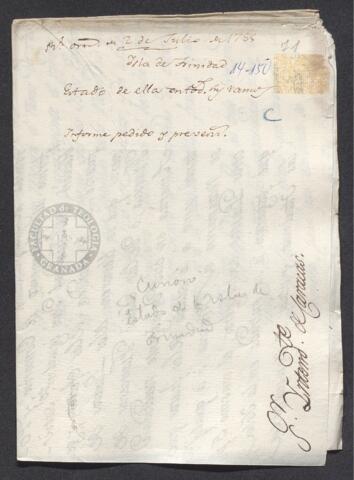 Rl. orden 2 de Julio de 1785
Isla de Trinidad
Estado de ella en todos sus ramos
Informe pedido y prevenn.
71
14-150
C
FACULTAD DE TEOLOGIA
GRANADA
Curioso
Estado de la Isla de
Trinidad
Sr. Intendte. de Caracas.